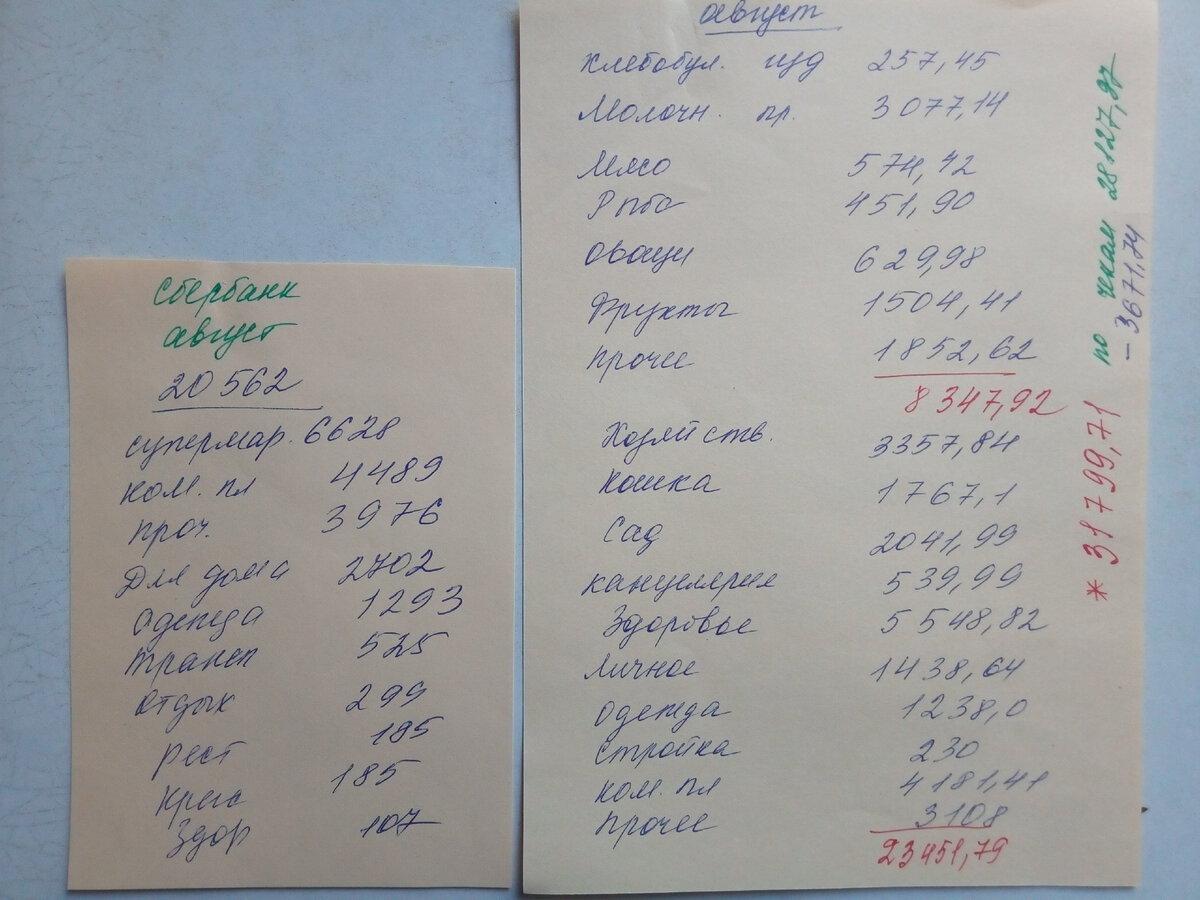 Сбербанк
август
20 562
супермар. 6628
ком. пл 4489
проч. 3976
Для дома 2702
Одежда 1293
трансп 525
Отдых 299
рест 195
Крас 185
Здор 107
август
Хлебобул. изд 257,45
Молочн. пр. 3077,14
Мясо 574,42
Рыба 451,90
Овощи 629,98
Фрукты 1504,41
прочее 1852,62
8347,92
Хозяйств. 3357,84
Кошка 1767,1
Сад 2041,99
канцелярия 539,99
Здоровье 5548,82
Личное 1438,64
Одежда 1238,0
Стройка 230
ком. пл 4181,41
прочее 3108
23451,79
* 31799,71
по чекам 28127,97
- 3671,74